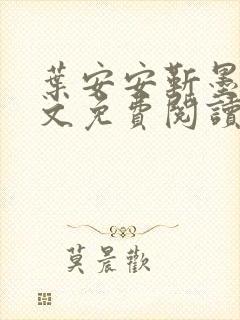 葉安安靳墨
文免費閱讀
莫晨歡